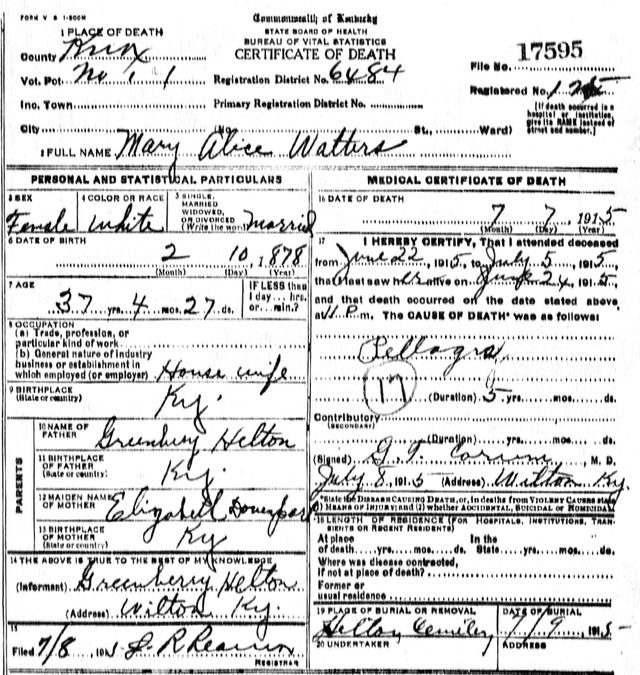 FORM V S 1-500M
Commonwealth of Kentucky
STATE BOARD OF HEALTH
BUREAU OF VITAL STATISTICS
CERTIFICATE OF DEATH
1 PLACE OF DEATH
County Knox
Vot. Pct No 1
Inc. Town
City (No. St., Ward)
Registration District No. 6484
Primary Registration District No.
File No. 17595
Registered No.
[If death occurred in a hospital or institution, give its NAME instead of street and number.]
2 FULL NAME Mary Alice Watters
PERSONAL AND STATISTICAL PARTICULARS
3 SEX
Female
4 COLOR OR RACE
White
5 SINGLE, MARRIED WIDOWED, OR DIVORCED (Write the word)
Married
6 DATE OF BIRTH
2 10, 1878
(Month) (Day) (Year)
7 AGE
37 yrs. 4 mos. 27 ds.
IF LESS than 1 day... hrs. or... min.?
8 OCCUPATION
(a) Trade, profession, or particular kind of work
(b) General nature of industry business or establishment in which employed (or employer) House wife
9 BIRTHPLACE
(State or country) Ky.
PARENTS
10 NAME OF FATHER Greenberry Helton
11 BIRTHPLACE OF FATHER (State or country) Ky.
12 MAIDEN NAME OF MOTHER Elizabell Davenport
13 BIRTHPLACE OF MOTHER (State or country) Ky
14 THE ABOVE IS TRUE TO THE BEST OF MY KNOWLEDGE
(Informant) Greenberry Helton
(Address) Wilton Ky.
15
Filed 7/8, 1915
REGISTRAR
MEDICAL CERTIFICATE OF DEATH
16 DATE OF DEATH
7 7, 1915
(Month) (Day) (Year)
17 I HEREBY CERTIFY, That I attended deceased
from June 22, 1915 to July 5, 1915,
that I last saw her alive on June 24, 1915
and that death occurred on the date stated above
at 11 P.m. The CAUSE OF DEATH* was as follows:
Pellagra
17
(Duration) 5 yrs. mos. ds.
Contributory
(SECONDARY)
(Duration) yrs. mos. ds.
(Signed) M. D.
July 8, 1915 (Address) Wilton Ky.
*State the DISEASE CAUSING DEATH, or, in deaths from VIOLENT CAUSES state
(1) MEANS OF INJURY; and (2) whether ACCIDENTAL, SUICIDAL or HOMICIDAL.
18 LENGTH OF RESIDENCE (FOR HOSPITALS, INSTITUTIONS, TRANSIENTS OR RECENT RESIDENTS)
At place of death yrs. mos. ds. In the State yrs. mos. ds.
Where was disease contracted,
If not at place of death?
Former or
usual residence
19 PLACE OF BURIAL OR REMOVAL
Helton
DATE OF BURIAL
7/9 1915
20 UNDERTAKER
ADDRESS